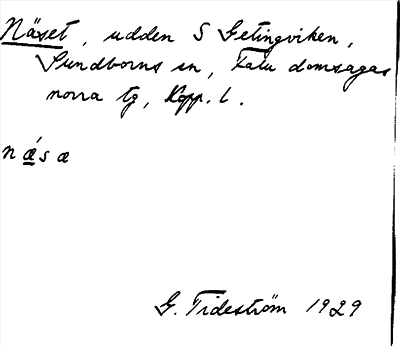 Näset, udden S Getingviken,
Sundborns sn, Falu domsagas
norra tg, Kopp. l.
næ´sæ
G. Tideström 1929